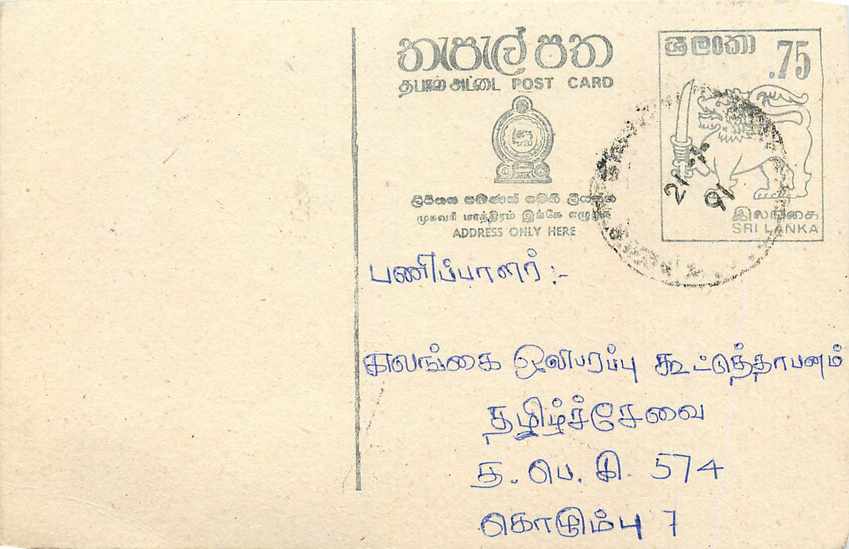 තැපැල් පත
தபால் அட்டை POST CARD
ලිපිනය පමණක් මෙහි ලියනු
முகவரி மாத்திரம் இங்கே எழுதுக
ADDRESS ONLY HERE
ශ්‍රී ලංකා
.75
இலங்கை
SRI LANKA
பணிப்பாளர் :-
இலங்கை ஒலிபரப்பு கூட்டுத்தாபனம்
தமிழ்ச்சேவை
த. பெ. கி. 574
கொழும்பு 7